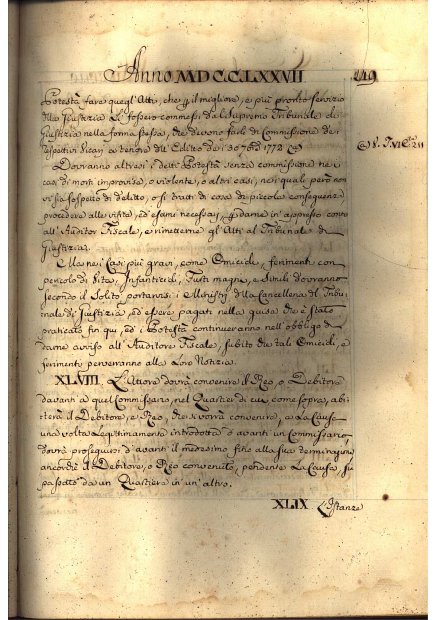 Anno MDCCLXXVII
219
Potestà fare quegl'Atti, che p il migliore, e più pronto servizio
della Giustizia Le fossero commessi dal Supremo Tribunale di
Giustizia nella forma stessa, che devono farli di Commissione dei
respettivi Vicarj a tenore dell'Editto de 30 7bre 1772 @
@ V. T. VI C. 211
Dovranno altresì i detti Potestà senza commissione nei
casi di morti improvise, o violente, o altri casi, nei quali però non
vi sia sospetto di delitto, o si tratti di cosa di piccola conseguenza
procedere alle visite, ed esami necessarj, p darne in appresso conto
all'Auditor Fiscale, e rimetterne gl'Atti al Tribunale di
Giustizia.
Ma nei Casi più gravi, come Omicidi, ferimenti con
pericolo di Vita, Infanticidi, Furti magni, e Simili dovranno
secondo il Solito portarvisi i Ministri della Cancelleria del Tribu-
nale di Giustizia, ed essere pagati nella guisa che è stato
praticato fin qui, ed i Potestà continueranno nell'obbligo di
darne avviso all'Auditore Fiscale, subito che tali Omicidi, e
ferimenti perverranno alla Loro Notizia.
XLVIII. L'Attore dovrà convenire il Reo, o Debitore
davanti a quel Commissario, nel Quartier di cui, come sopra, abi-
terà il Debitore, o Reo, che si vorrà convenire, e La Causa
una volta Legittimamente introdotta d'avanti un Commissario,
dovrà proseguirsi d'avanti il medesimo fino alla sua terminazione
ancorchè il Debitore, o Reo convenuto, pendente La Causa, sia
passato da un Quartiere in un'altro.
XLIX L'Istanze